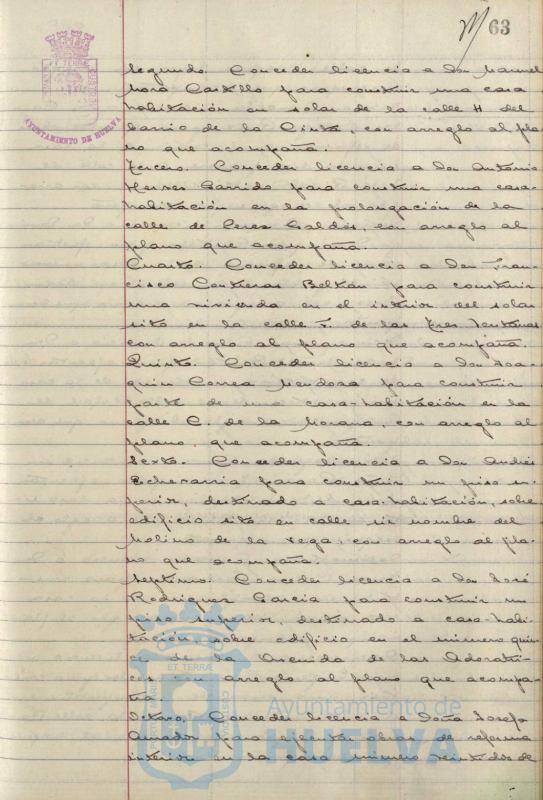 63
AYUNTAMIENTO DE HUELVA
Segundo. Conceder licencia a don Manuel
Mora Castillo para construir una casa
habitación en solar de la calle H del
barrio de la Cinta, con arreglo al pla-
no que acompaña.
Tercero. Conceder licencia a don Antonio
Garrido para construir una casa-
habitación en la prolongación de la
calle de Perez Galdós, con arreglo al
plano que acompaña.
Cuarto. Conceder licencia a don Fran-
cisco Contreras Beltrán para construir
una vivienda en el interior del solar
sito en la calle F. de las Tres Ventanas
con arreglo al plano que acompaña.
Quinto. Conceder licencia a don Joa-
quin Correa Mendoza para construir
parte de una casa-habitación en la
calle C. de la Morana, con arreglo al
plano que acompaña.
Sexto. Conceder licencia a don Andrés
Echevarria para construir un piso su-
perior, destinado a casa-habitación, sobre
edificio sito en calle sin nombre del
Molino de la Vega, con arreglo al pla-
no que acompaña.
Septimo. Conceder licencia a don José
Rodriguez Garcia para construir un
piso superior, destinado a casa-habi-
tación, sobre edificio en el número quin-
ce de la Avenida de las Adoratri-
ces con arreglo al plano que acompa-
ña.
Octavo. Conceder licencia a doña Josefa
Amador para ejecutar obras de reforma
interior en la casa número veintidos de
Ayuntamiento de
HUELVA